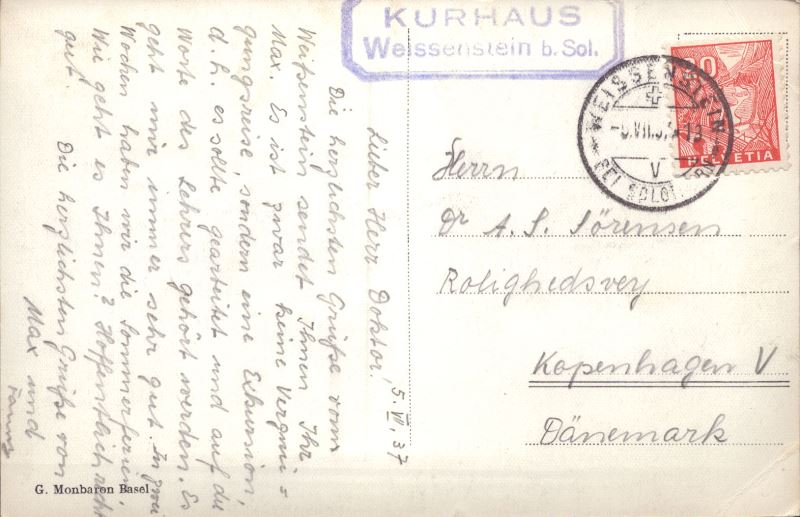 KURHAUS
Weissenstein b. Sol.
20
HELVETIA
WEISSENSTEIN
V
Herrn
Dr A. S. Sörensen
Rolighedsvey
Kopenhagen V
Dänemark
5. VII. 37
Lieber Herr Doktor!
Die herzlichsten Grüße vom
Weißenstein sendet Ihnen Ihr
Max. Es ist zwar keine Vergnü=
gungsreise, sondern eine Exkursion,
d. h. es sollte gearbeitet und auf die
Worte des Lehrers gehört werden. Es
geht mir immer sehr gut. In zwei
Wochen haben wir die Sommerferien.
Wie geht es Ihnen? Hoffentlich recht
gut.
Die herzlichsten Grüße von
Max und
G. Monbaron Basel